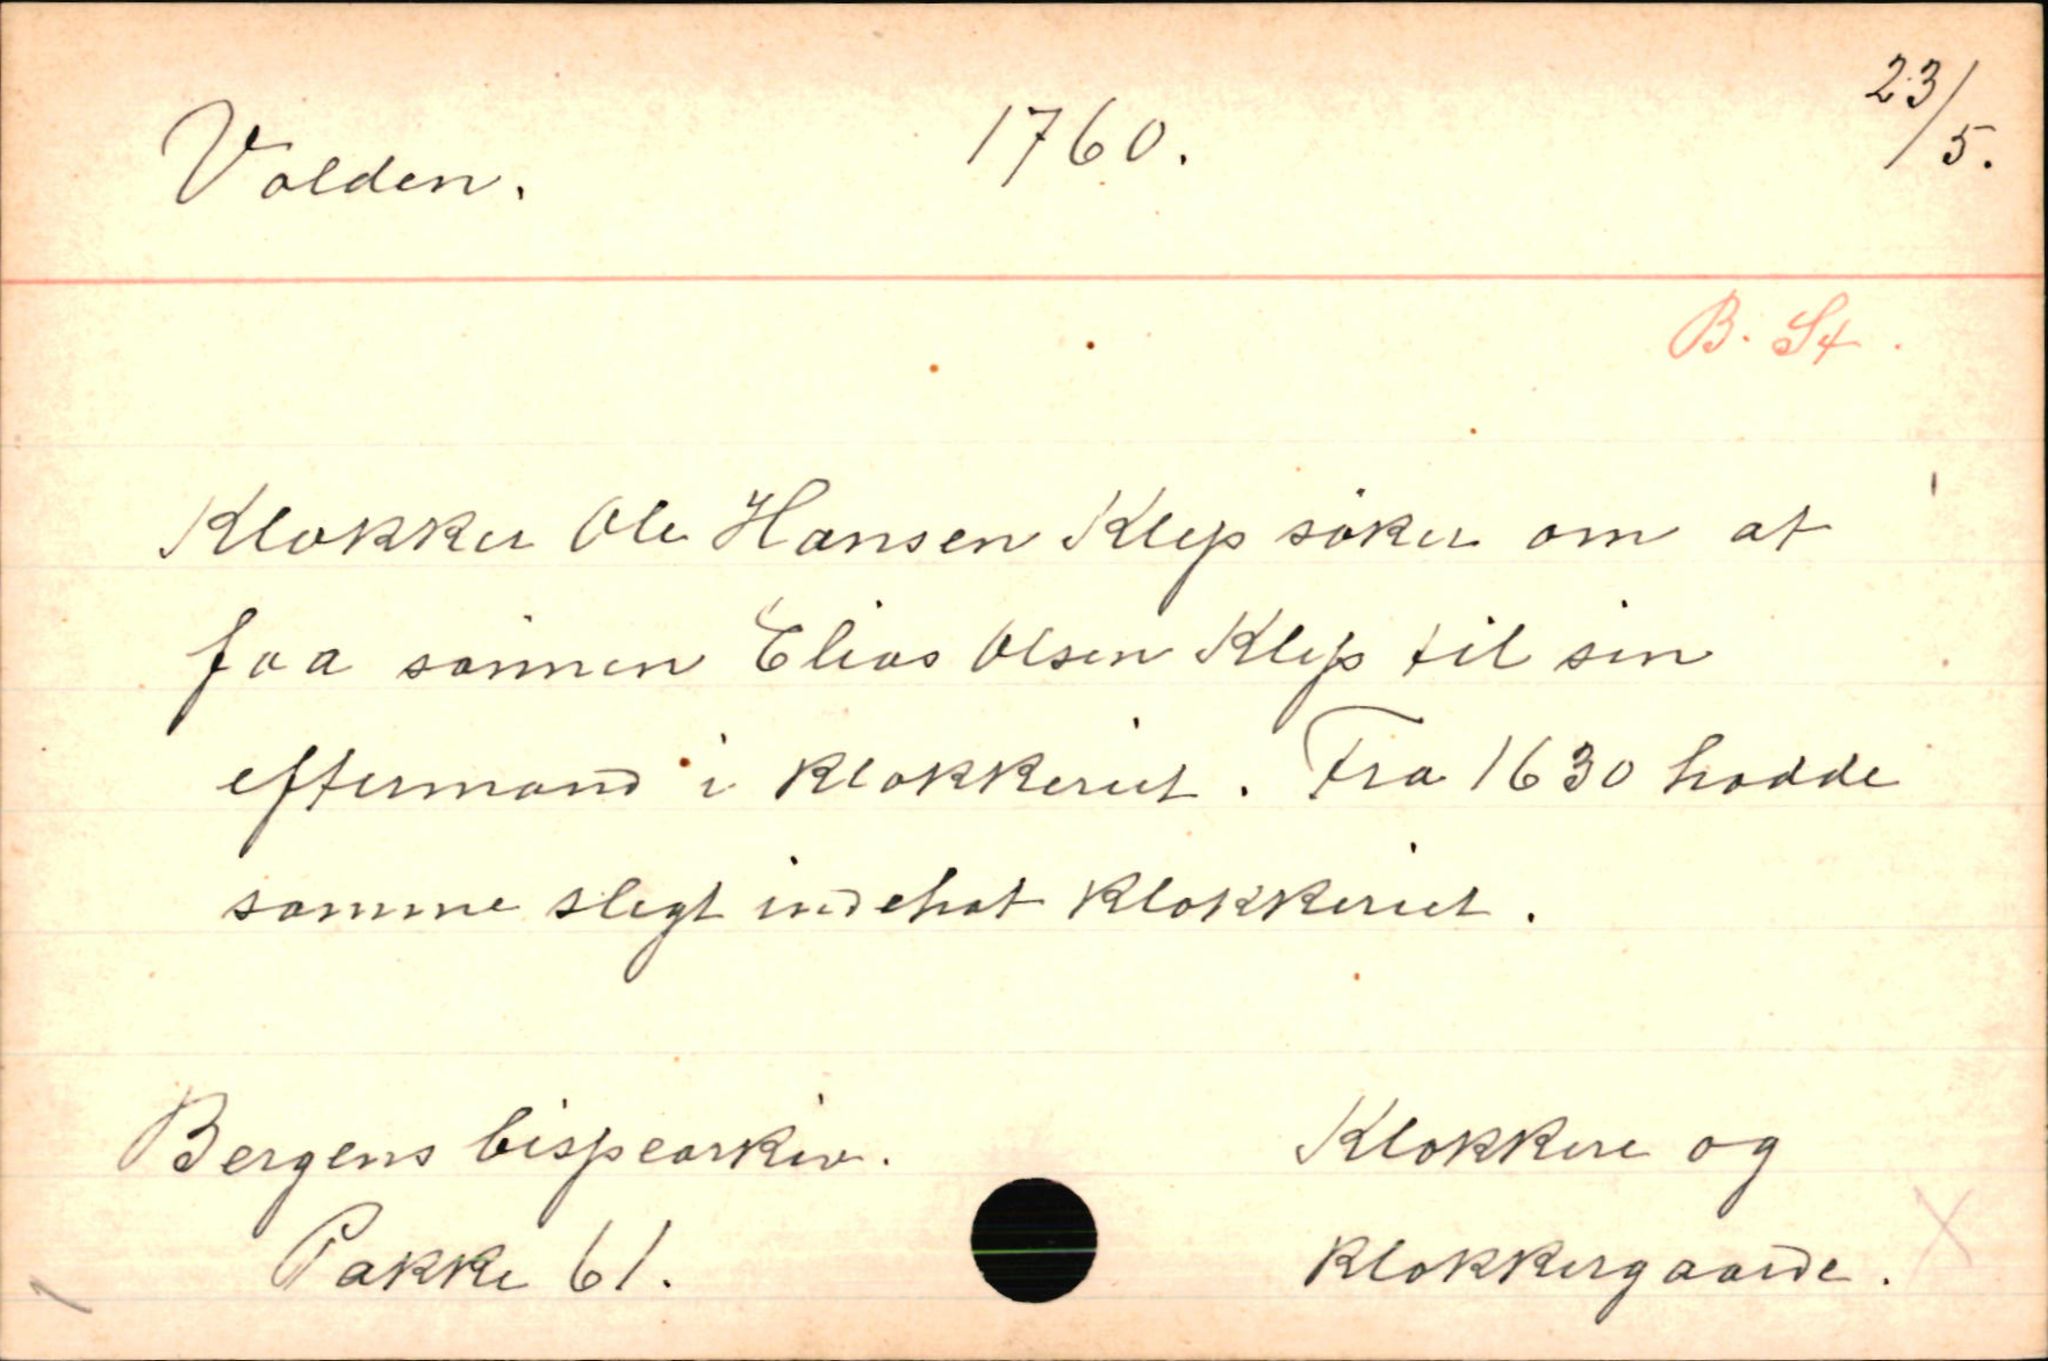 Volden. 1760. 23/5.
B. St.
Klokker Ole Hansen Klep søker om at
faa sønnen Elias Olsen Klep til sin
eftermand i klokkeriet. Fra 1630 hadde
samme slegt indehat klokkeriet.
Bergens bispearkiv. Klokkere og
Pakke 61. klokkergaarde.